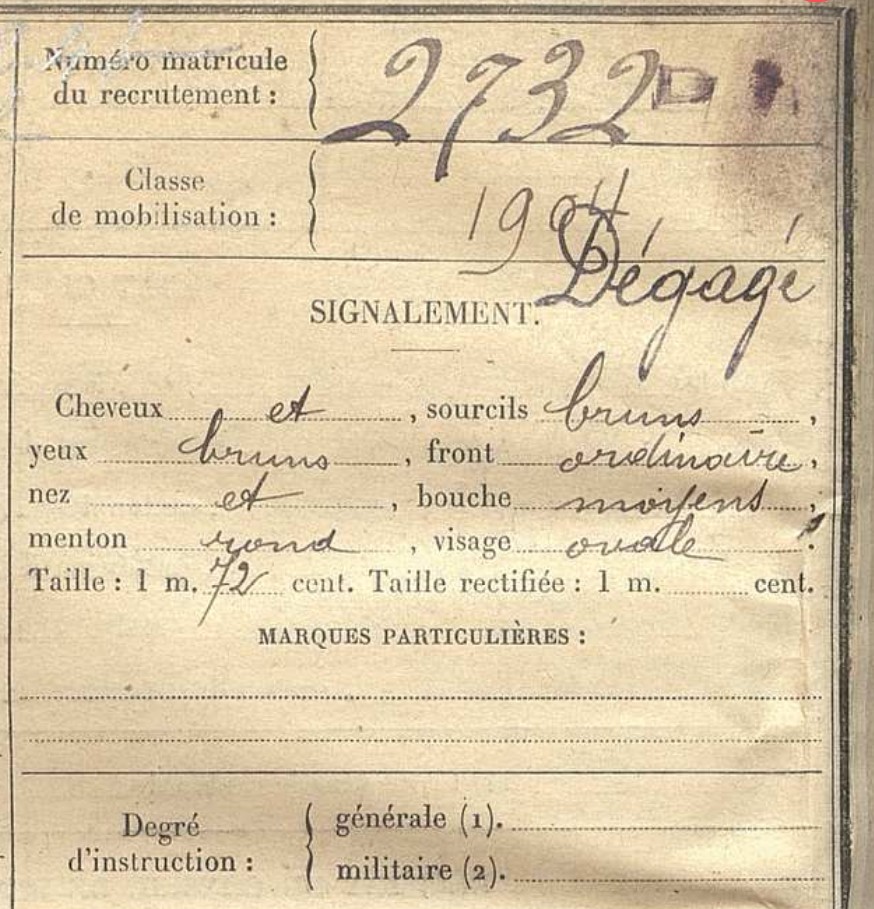 Numéro matricule
du recrutement : 2732 D
Classe
de mobilisation : 1904
Dégagé
SIGNALEMENT.
Cheveux et , sourcils bruns ,
yeux bruns , front ordinaire ,
nez et , bouche moyens ,
menton rond , visage ovale .
Taille : 1 m. 72 cent. Taille rectifiée : 1 m. cent.
MARQUES PARTICULIÈRES :
Degré
d'instruction :
générale (1).
militaire (2).